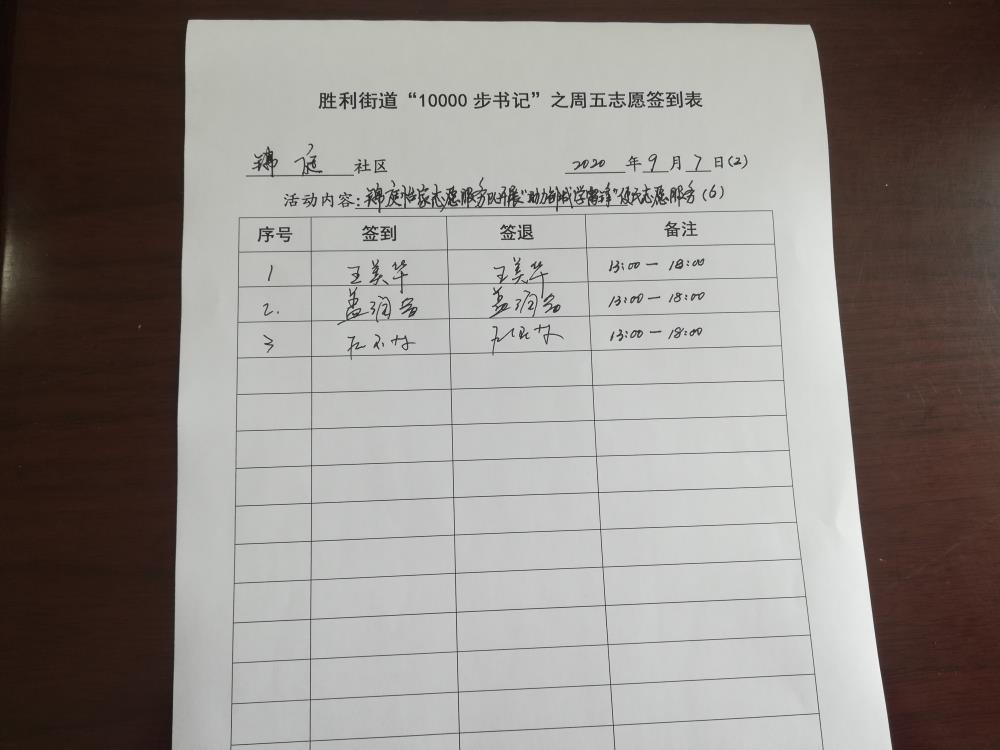 胜利街道“10000步书记”之周五志愿签到表
锦庭 社区 2020 年 9 月 7 日(2)
活动内容:锦庭怡家志愿服务队开展“助力创城学雷锋”便民志愿服务(6)
序号 签到 签退 备注
1 王美华 王美华 13:00—18:00
2. 盖润 盖润 13:00—18:00
3 13:00—18:00